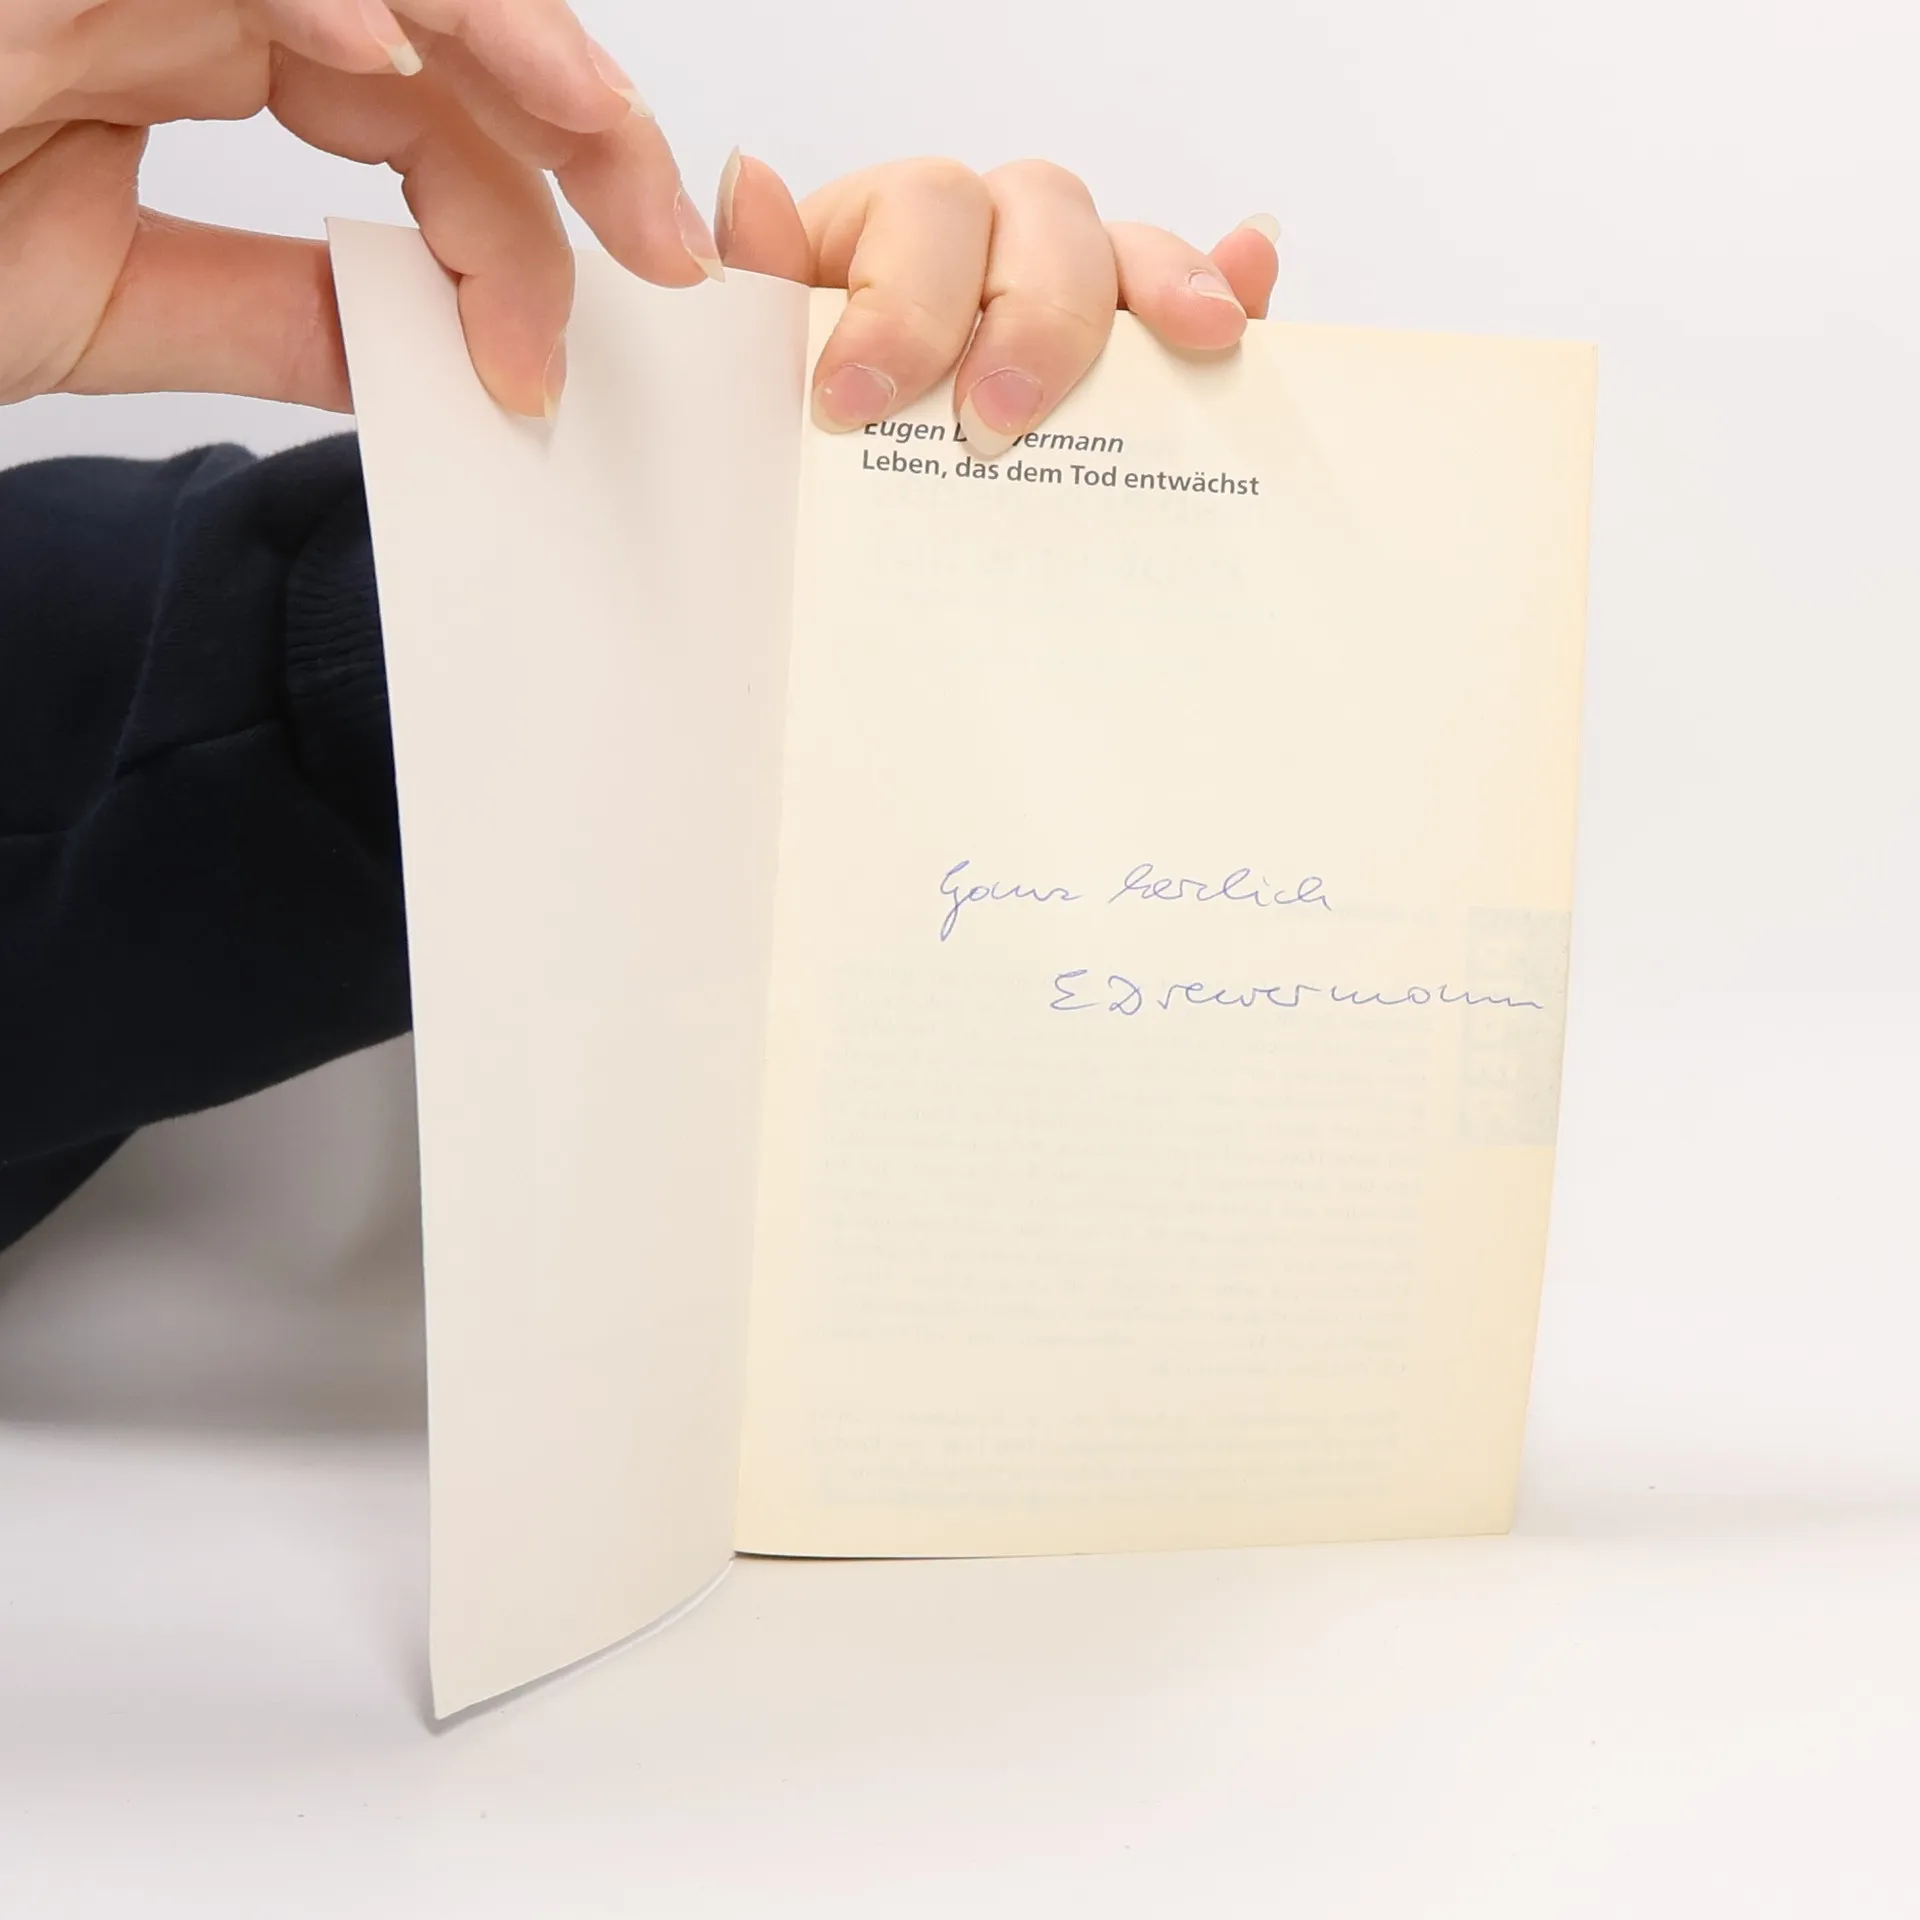 Eugen Drewermann
Leben, das dem Tod entwächst
Ganz herzlich
E Drewermann